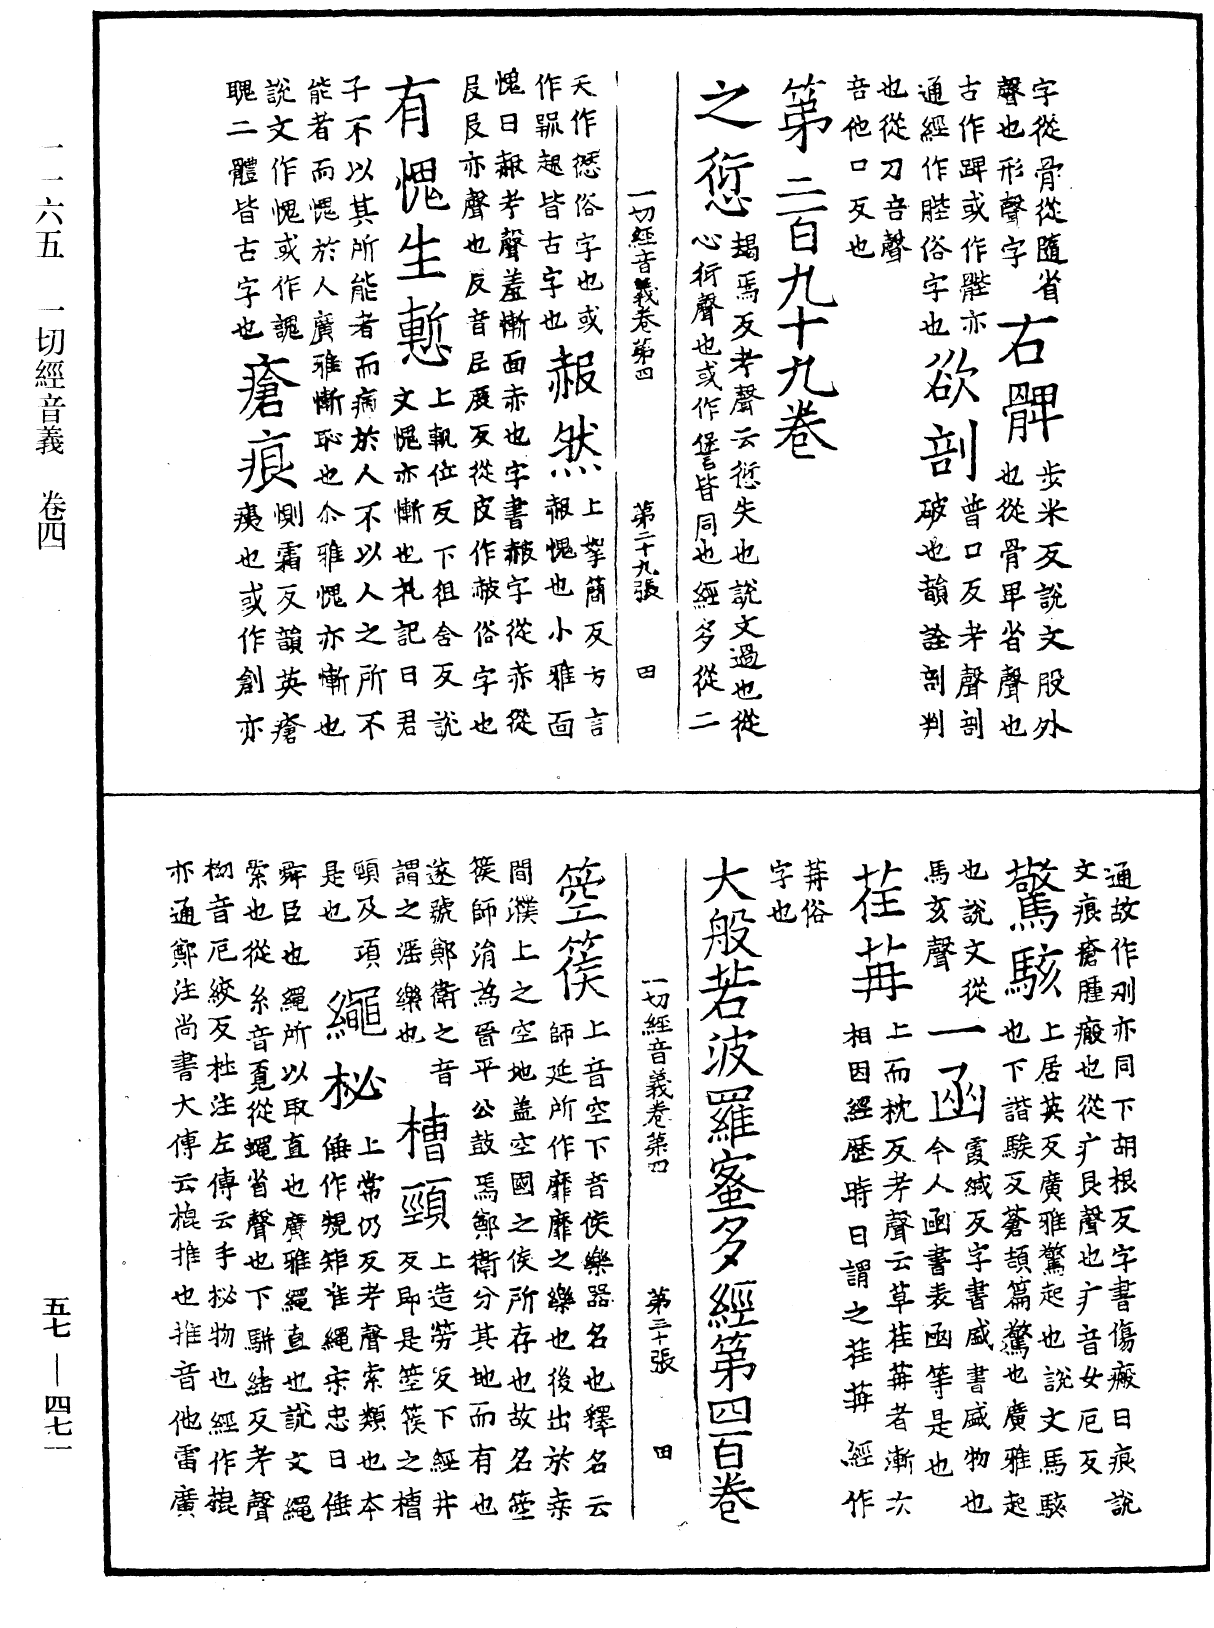 字從骨從隨省
聲也形聲字
右髀
步米反說文股外
也從骨卑省聲也
古作踔或作䏶亦
通經作䏶俗字也
欲剖
普口反考聲剖
破也韻詮剖判
也從刀咅聲
咅他口反也
第二百九十九卷
之愆
朅焉反考聲云愆失也說文過也從
心衍聲也或作𠎝諐皆同也經多從二
一切經音義卷第四 第二十九張 四
天作𠎝俗字也或
作𦋛𧺫皆古字也
赧然
上拏簡反方言
赧愧也小雅面
愧曰赧考聲羞慚面赤也字書赧字從赤從
㞋㞋亦聲也㞋音尼展反從皮作赧俗字也
有愧生慙
上軌位反下徂含反說
文愧亦慚也礼記曰君
子不以其所能者而病於人不以人之所不
能者而愧於人廣雅慚恥也尒雅愧亦慚也
說文作愧或作謉
聭二體皆古字也
瘡痕
惻霜反韻英瘡
痍也或作創亦
通故作刅亦同下胡根反字書傷瘢曰痕說
文痕瘡腫瘢也從疒艮聲也疒音女厄反
驚駭
上居英反廣雅驚起也說文馬駭
也下諧駭反蒼頡篇驚也廣雅起
也說文從
馬亥聲
一函
霞緘反字書咸書咸物也
今人函書表函等是也
荏苒
上而枕反考聲云草荏苒者漸次
相因經歷時日謂之荏苒經作
苒俗
字也
大般若波羅蜜多經第四百卷
一切經音義卷第四 第三十張 四
箜篌
上音空下音侯樂器名也釋名云
師延所作靡靡之樂也後出於桒
間濮上之空地盖空國之侯所存也故名箜
篌師涓為晉平公鼓焉鄭衛分其地而有也
遂號鄭衛之音
謂之滛樂也
槽頸
上造勞反下經井
反即是箜篌之槽
頸及項
是也
繩柲
上常仍反考聲索類也本
倕作規矩准繩宋忠曰倕
舜臣也繩所以取直也廣雅繩直也說文繩
索也從糸音覓從蠅省聲也下騈結反考聲
柲音厄絞反杜注左傳云手柲物也經作棍
亦通鄭注尚書大傳云棍推也推音他雷廣
一一六五 一切經音義 卷四 五七—四七一